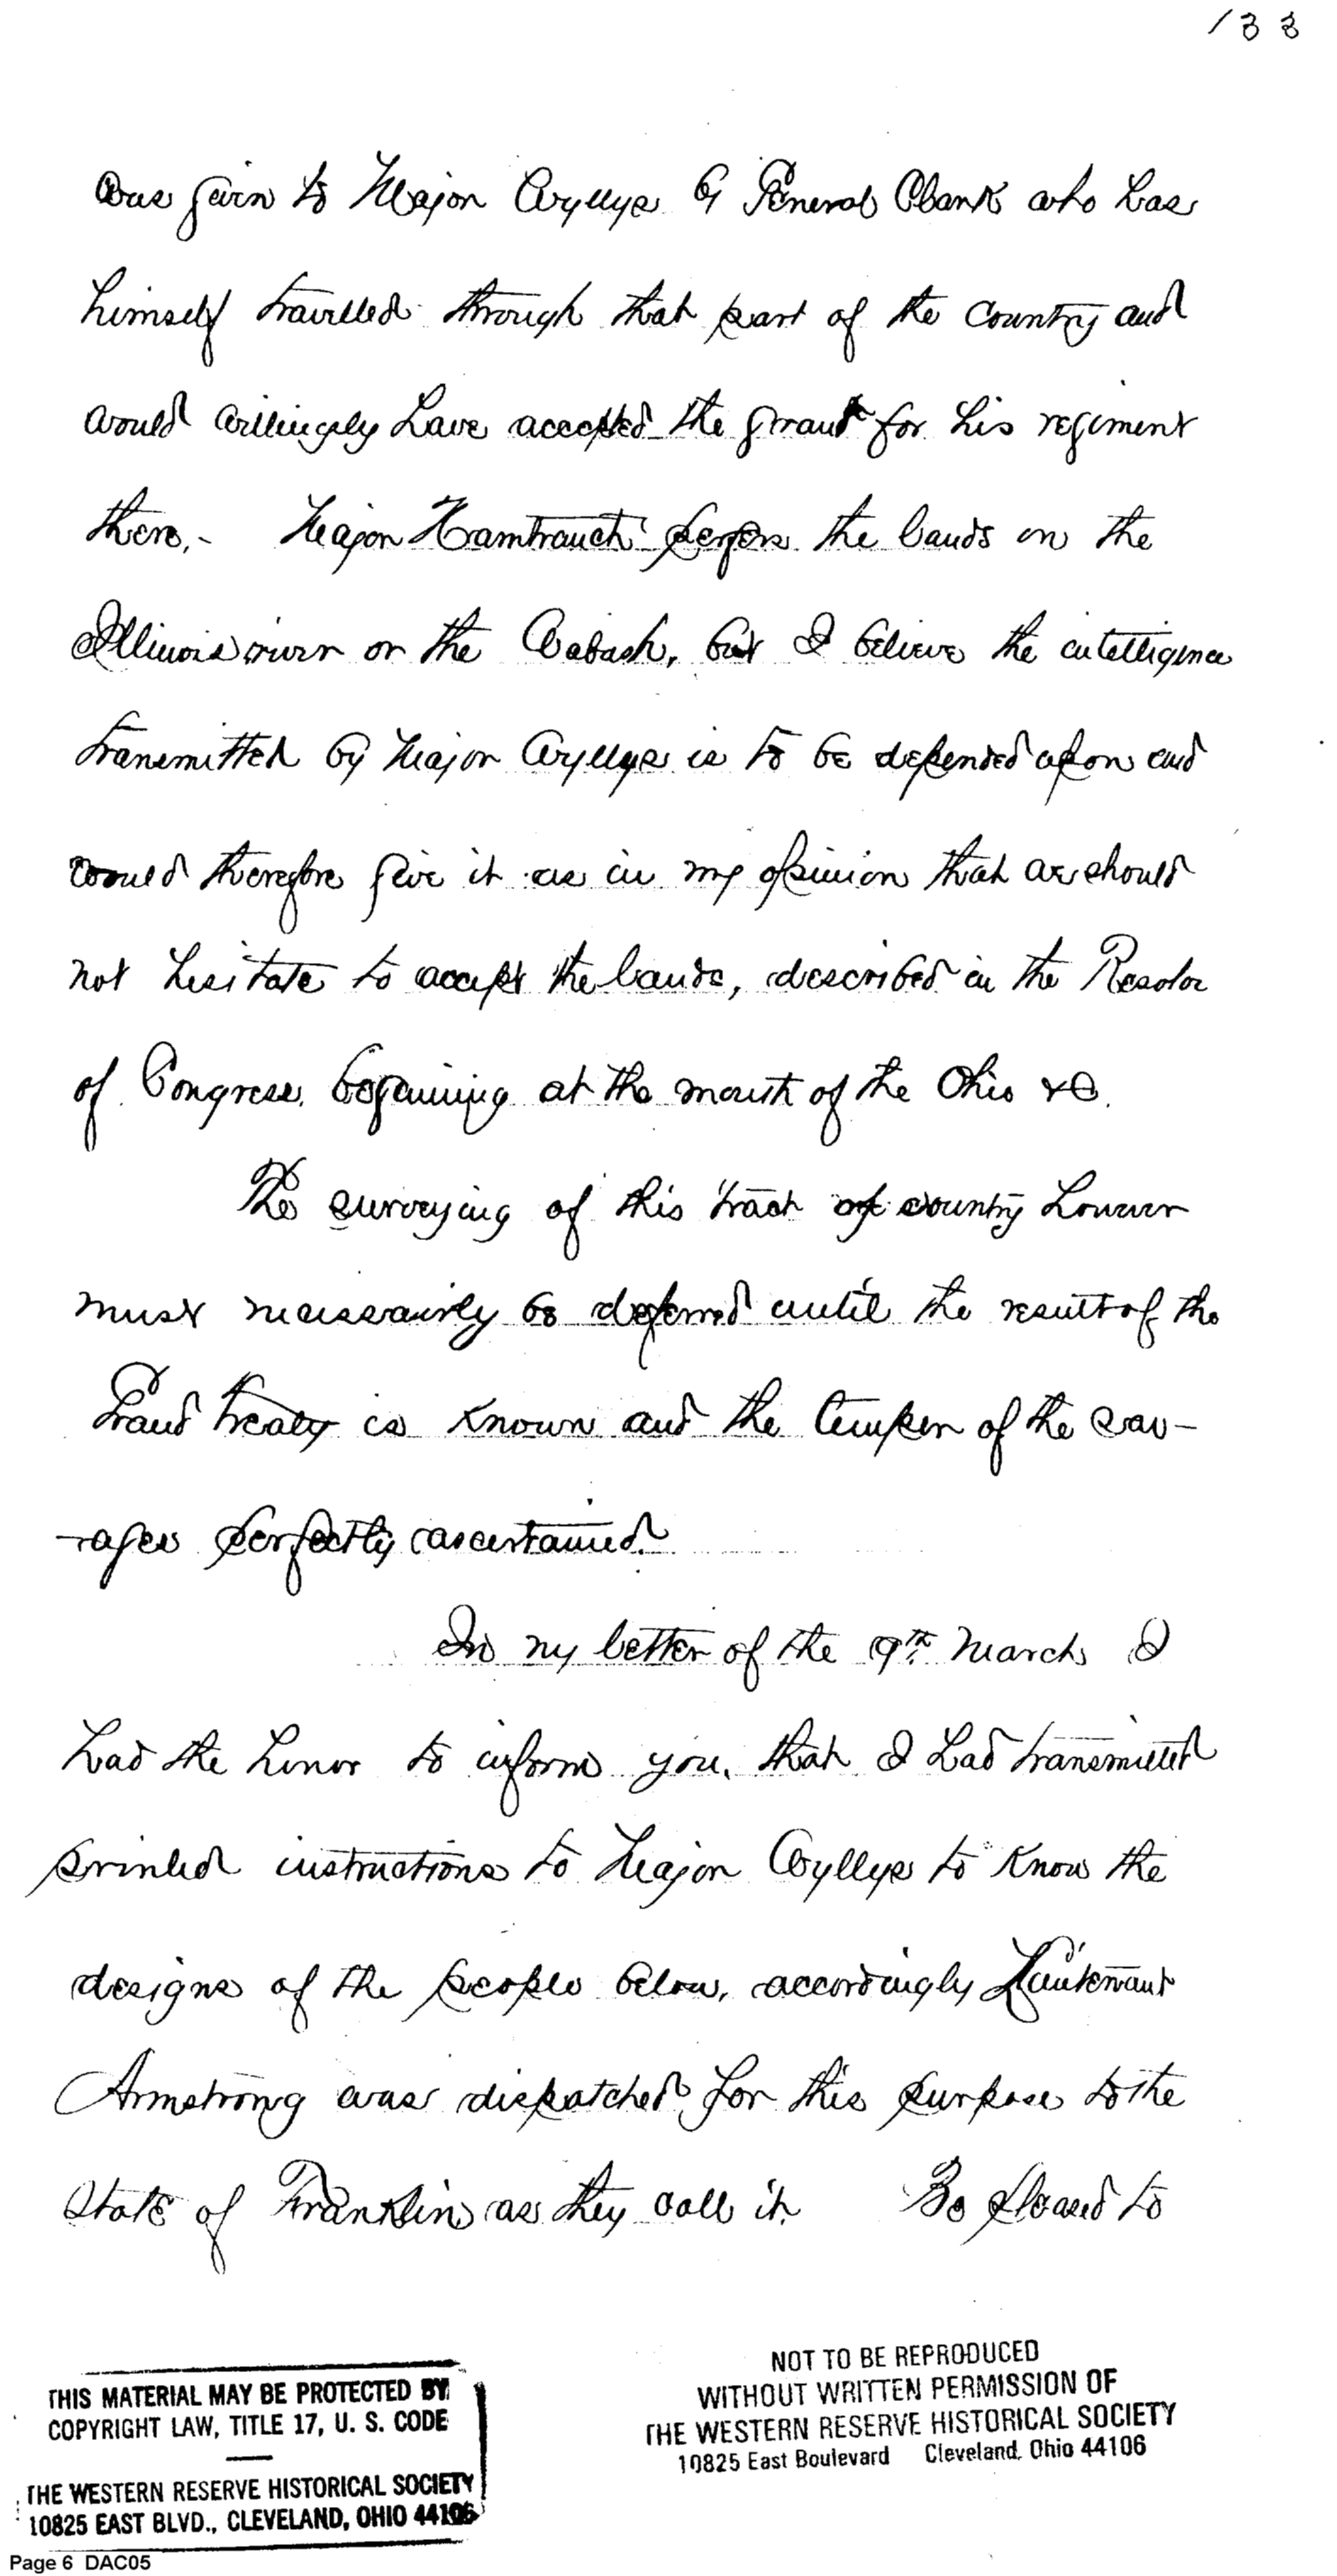 133
was givn to Major Wyllys by General Clark who has
himself travelled through that part of the Country and
would willingly have accepted the grant for his regiment
there. - Major Hamtramck prefers the lands on the
Illinois river or the Wabash, but I believe the intelligence
transmitted by Major Wyllys is to be depended upon and
would therefore give it as in my opinion that we should
not hesitate to accept the lands, described in the Resolve
of Congress, begining at the mouth of the Ohio &c.
The surveying of this tract of country however
must necessarily be deferred until the result of the
Grand treaty is known and the temper of the sav-
-ages perfectly ascertained.
In my letter of the 9th March I
had the honor to inform you, that I had transmitted
printed instructions to Major Wyllys to know the
designs of the people below, accordingly Lieutenant
Armstrong was dispatched for this purpose to the
State of Franklin as they call it. Be pleased to
THIS MATERIAL MAY BE PROTECTED BY
COPYRIGHT LAW, TITLE 17, U. S. CODE
THE WESTERN RESERVE HISTORICAL SOCIETY
10825 EAST BLVD., CLEVELAND, OHIO 44106
NOT TO BE REPRODUCED
WITHOUT WRITTEN PERMISSION OF
THE WESTERN RESERVE HISTORICAL SOCIETY
10825 East Boulevard Cleveland, Ohio 44106
Page 6 DAC05